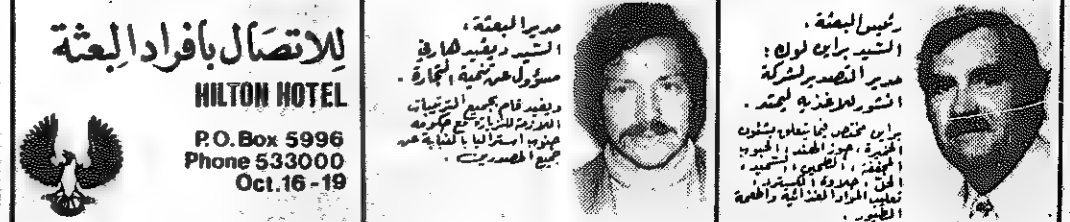 رئيس البعثة .
السيد براين لوك :
مدير التصدير لشركة
انشور للاغذيه ليمتد .
براين مختص فيما يتعلق بشئون
الخميرة ، جوز الهند ، الحبوب
المجففة ، الطحين ، السميد ،
الخل ، حلاوة ، الكسترد ،
تعليب المواد الغذائية واطعمة
الطيور .
مدير البعثة :
السيد ديفيد هارفي
مسؤول عن تنمية التجارة .
ديفيد قام بجميع الترتيبات
اللازمة للزيارة مع حكومة
جنوب استراليا بالنيابة عن
جميع المصدرين .
للاتصال بأفراد البعثة
HILTON HOTEL
P.O. Box 5996
Phone 533000
Oct. 16 - 19